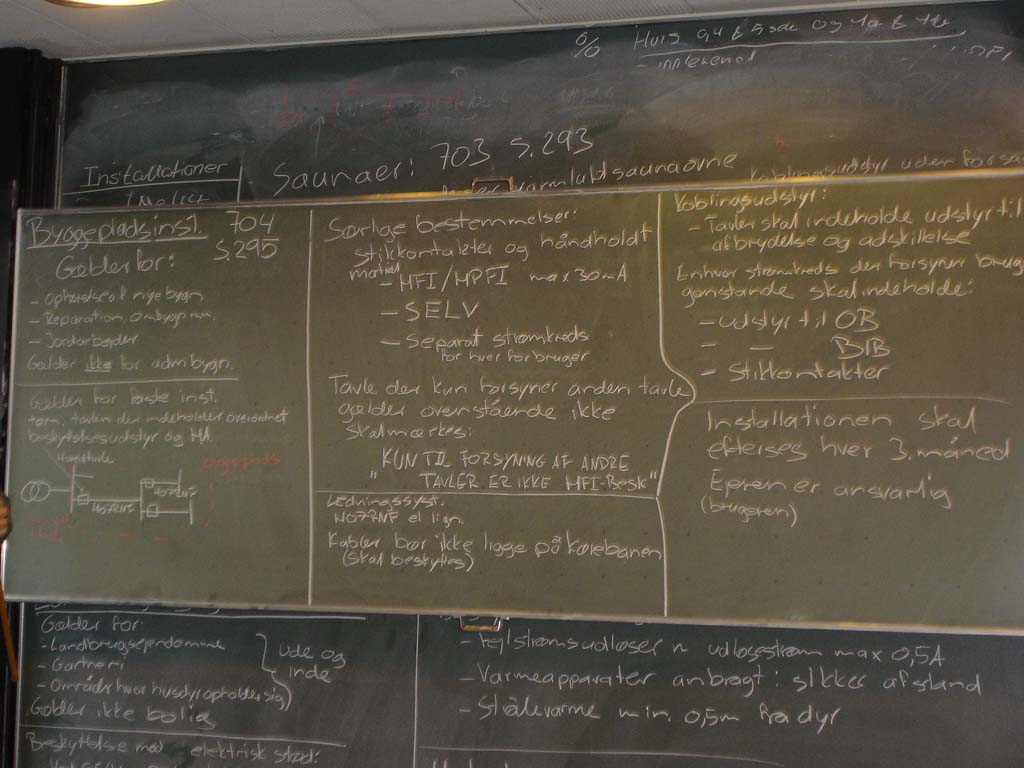 Installationer
Saunaer: 703 S.293
varmluftsaunaovne
Koblingsudstyr uden for sau
Byggepladsinst. 704
S.295
Gælder for:
- Opførelse af nye bygn
- Reparation ombygn
- Jordarbejder
Gælder ikke for adm bygn.
Gælder for faste inst.
som. tavlen der indeholder overordnet
beskyttelsesudstyr og HA.
Hovedtavle
byggeplads
H07RNF
H07RNF
H07RNF
Særlige bestemmelser:
Stikkontakter og håndholdt
matriel
- HFI/HPFI max 30mA
- SELV
- Separat strømkreds
for hver forbruger
Tavle der kun forsyner anden tavle
gælder ovenstående ikke
skal mærkes:
"KUN TIL FORSYNING AF ANDRE
TAVLER ER IKKE HFI-Besk"
Ledningssyst.
H07RNF el lign.
Kabler bør ikke ligge på kørebanen
(skal beskyttes)
Koblingsudstyr:
- Tavler skal indeholde udstyr til
afbrydelse og adskillelse
Enhver strømkreds der forsyner brugs
genstande skal indeholde:
- udstyr til OB
- — BIB
- Stikkontakter
Installationen skal
efterses hver 3. måned
Ejeren er ansvarlig
(brugeren)
Gælder for:
- Landbrugsejendomme
- Gartneri
- Områder hvor husdyr opholder sig
ude og
inde
Gælder ikke bolig
Beskyttelse mod elektrisk stød:
- Fejlstrømsudløser m udløsestrøm max 0,5A
- Varmeapparater anbragt i sikker afstand
- Strålevarme min. 0,5m fra dyr